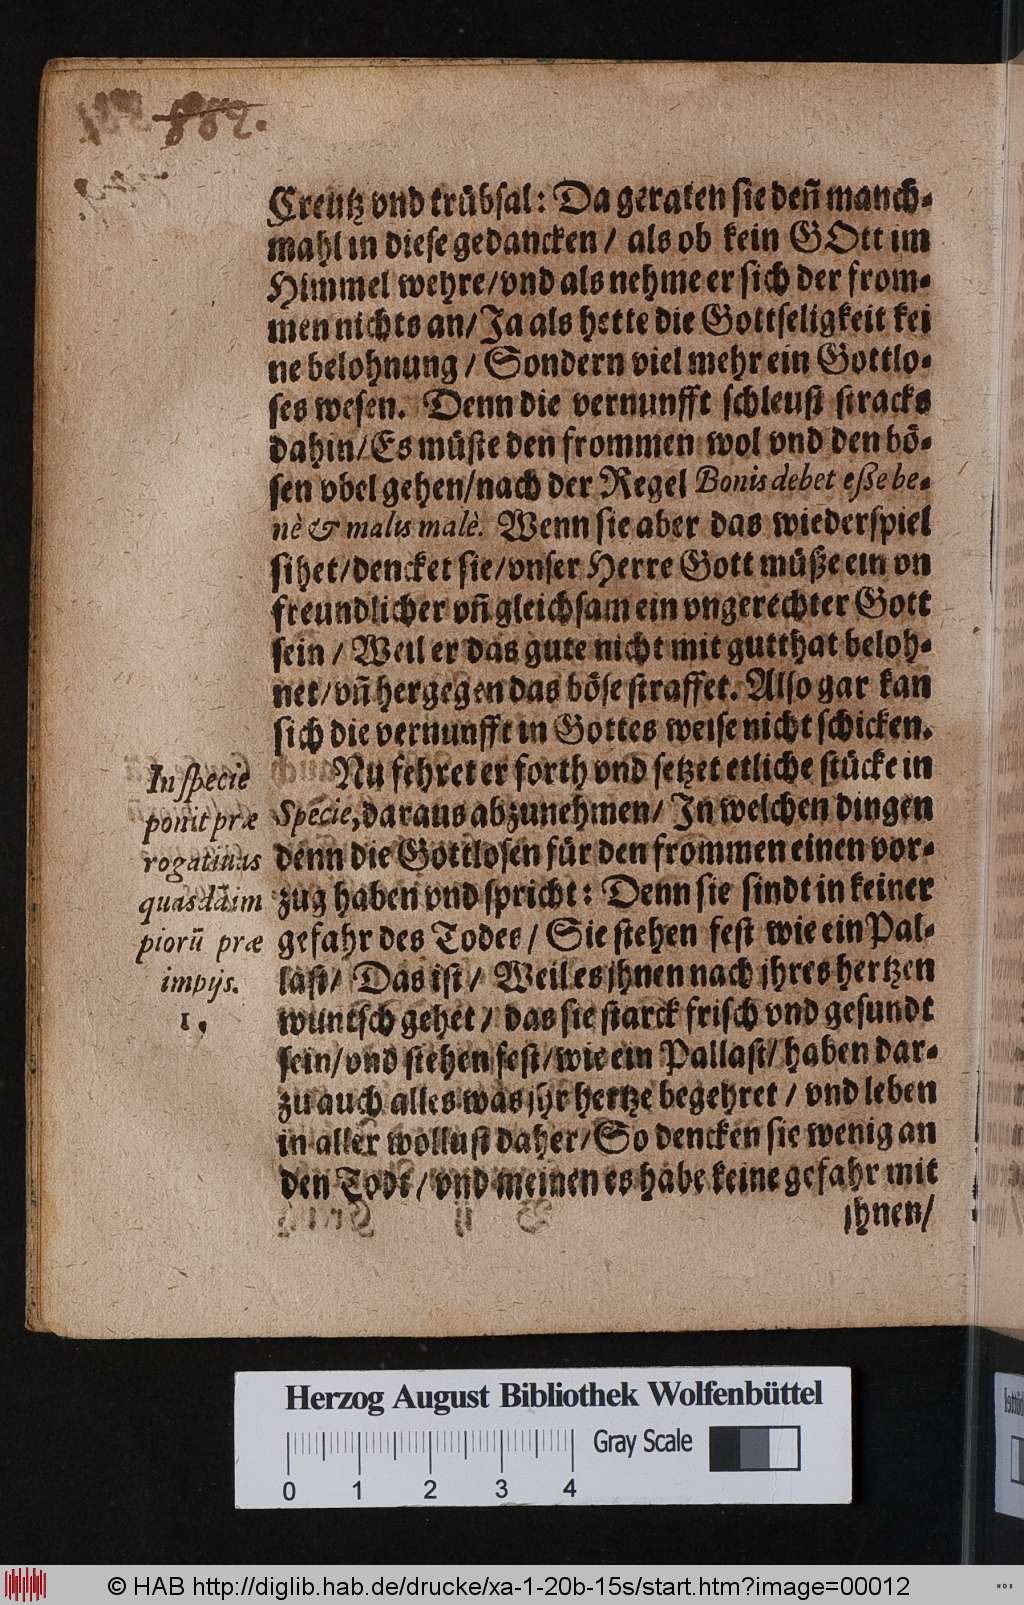 882.
Creutz vnd trübsal: Da geraten sie deñ manch-
mahl in diese gedancken / als ob kein GOtt im
Himmel wehre/vnd als nehme er sich der from-
men nichts an/Ja als hette die Gottseligkeit kei
ne belohnung / Sondern viel mehr ein Gottlo-
ses wesen. Denn die vernunfft schleust stracks
dahin/Es müste den frommen wol vnd den bö-
sen vbel gehen/nach der Regel Bonis debet eße be-
nè & malis malè. Wenn sie aber das wiederspiel
sihet/dencket sie/vnser Herre Gott müße ein vn
freundlicher vñ gleichsam ein vngerechter Gott
sein / Weil er das gute nicht mit gutthat beloh-
net/vñ hergegen das böse straffet. Also gar kan
sich die vernunfft in Gottes weise nicht schicken.
Nu fehret er forth vnd setzet etliche stücke in
Specie, daraus abzunehmen/ In welchen dingen
denn die Gottlosen für den frommen einen vor-
zug haben vnd spricht: Denn sie sindt in keiner
gefahr des Todes/ Sie stehen fest wie ein Pal-
last/ Das ist/ Weil es jhnen nach jhres hertzen
wuntsch gehet/ das sie starck frisch vnd gesundt
sein/vnd stehen fest/wie ein Pallast/ haben dar-
zu auch alles was jhr hertze begehret / vnd leben
in aller wollust daher/So dencken sie wenig an
den Todt / vnd meinen es habe keine gefahr mit
jhnen/
In specie
ponit præ
rogativas
quasdā im
piorū præ
impijs.
1.
Herzog August Bibliothek Wolfenbüttel
Gray Scale
0 1 2 3 4
© HAB http://diglib.hab.de/drucke/xa-1-20b-15s/start.htm?image=00012